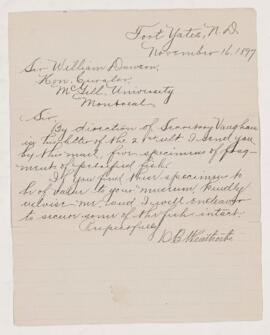 Fort Yates, N.D.
November 16, 1897
Sir William Dawson,
Hon. Curator,
McGill University
Montreal
Sir
By direction of Secretary Vaughan
in his letter of the 2d ult I send you
by this mail, five specimens of frag-
ment of petrified fish.
If you find these specimens to
b of value to your museum, kindly
advise me and I will endeavor
to secure some of the fish intact.
Respectfully
D.C.